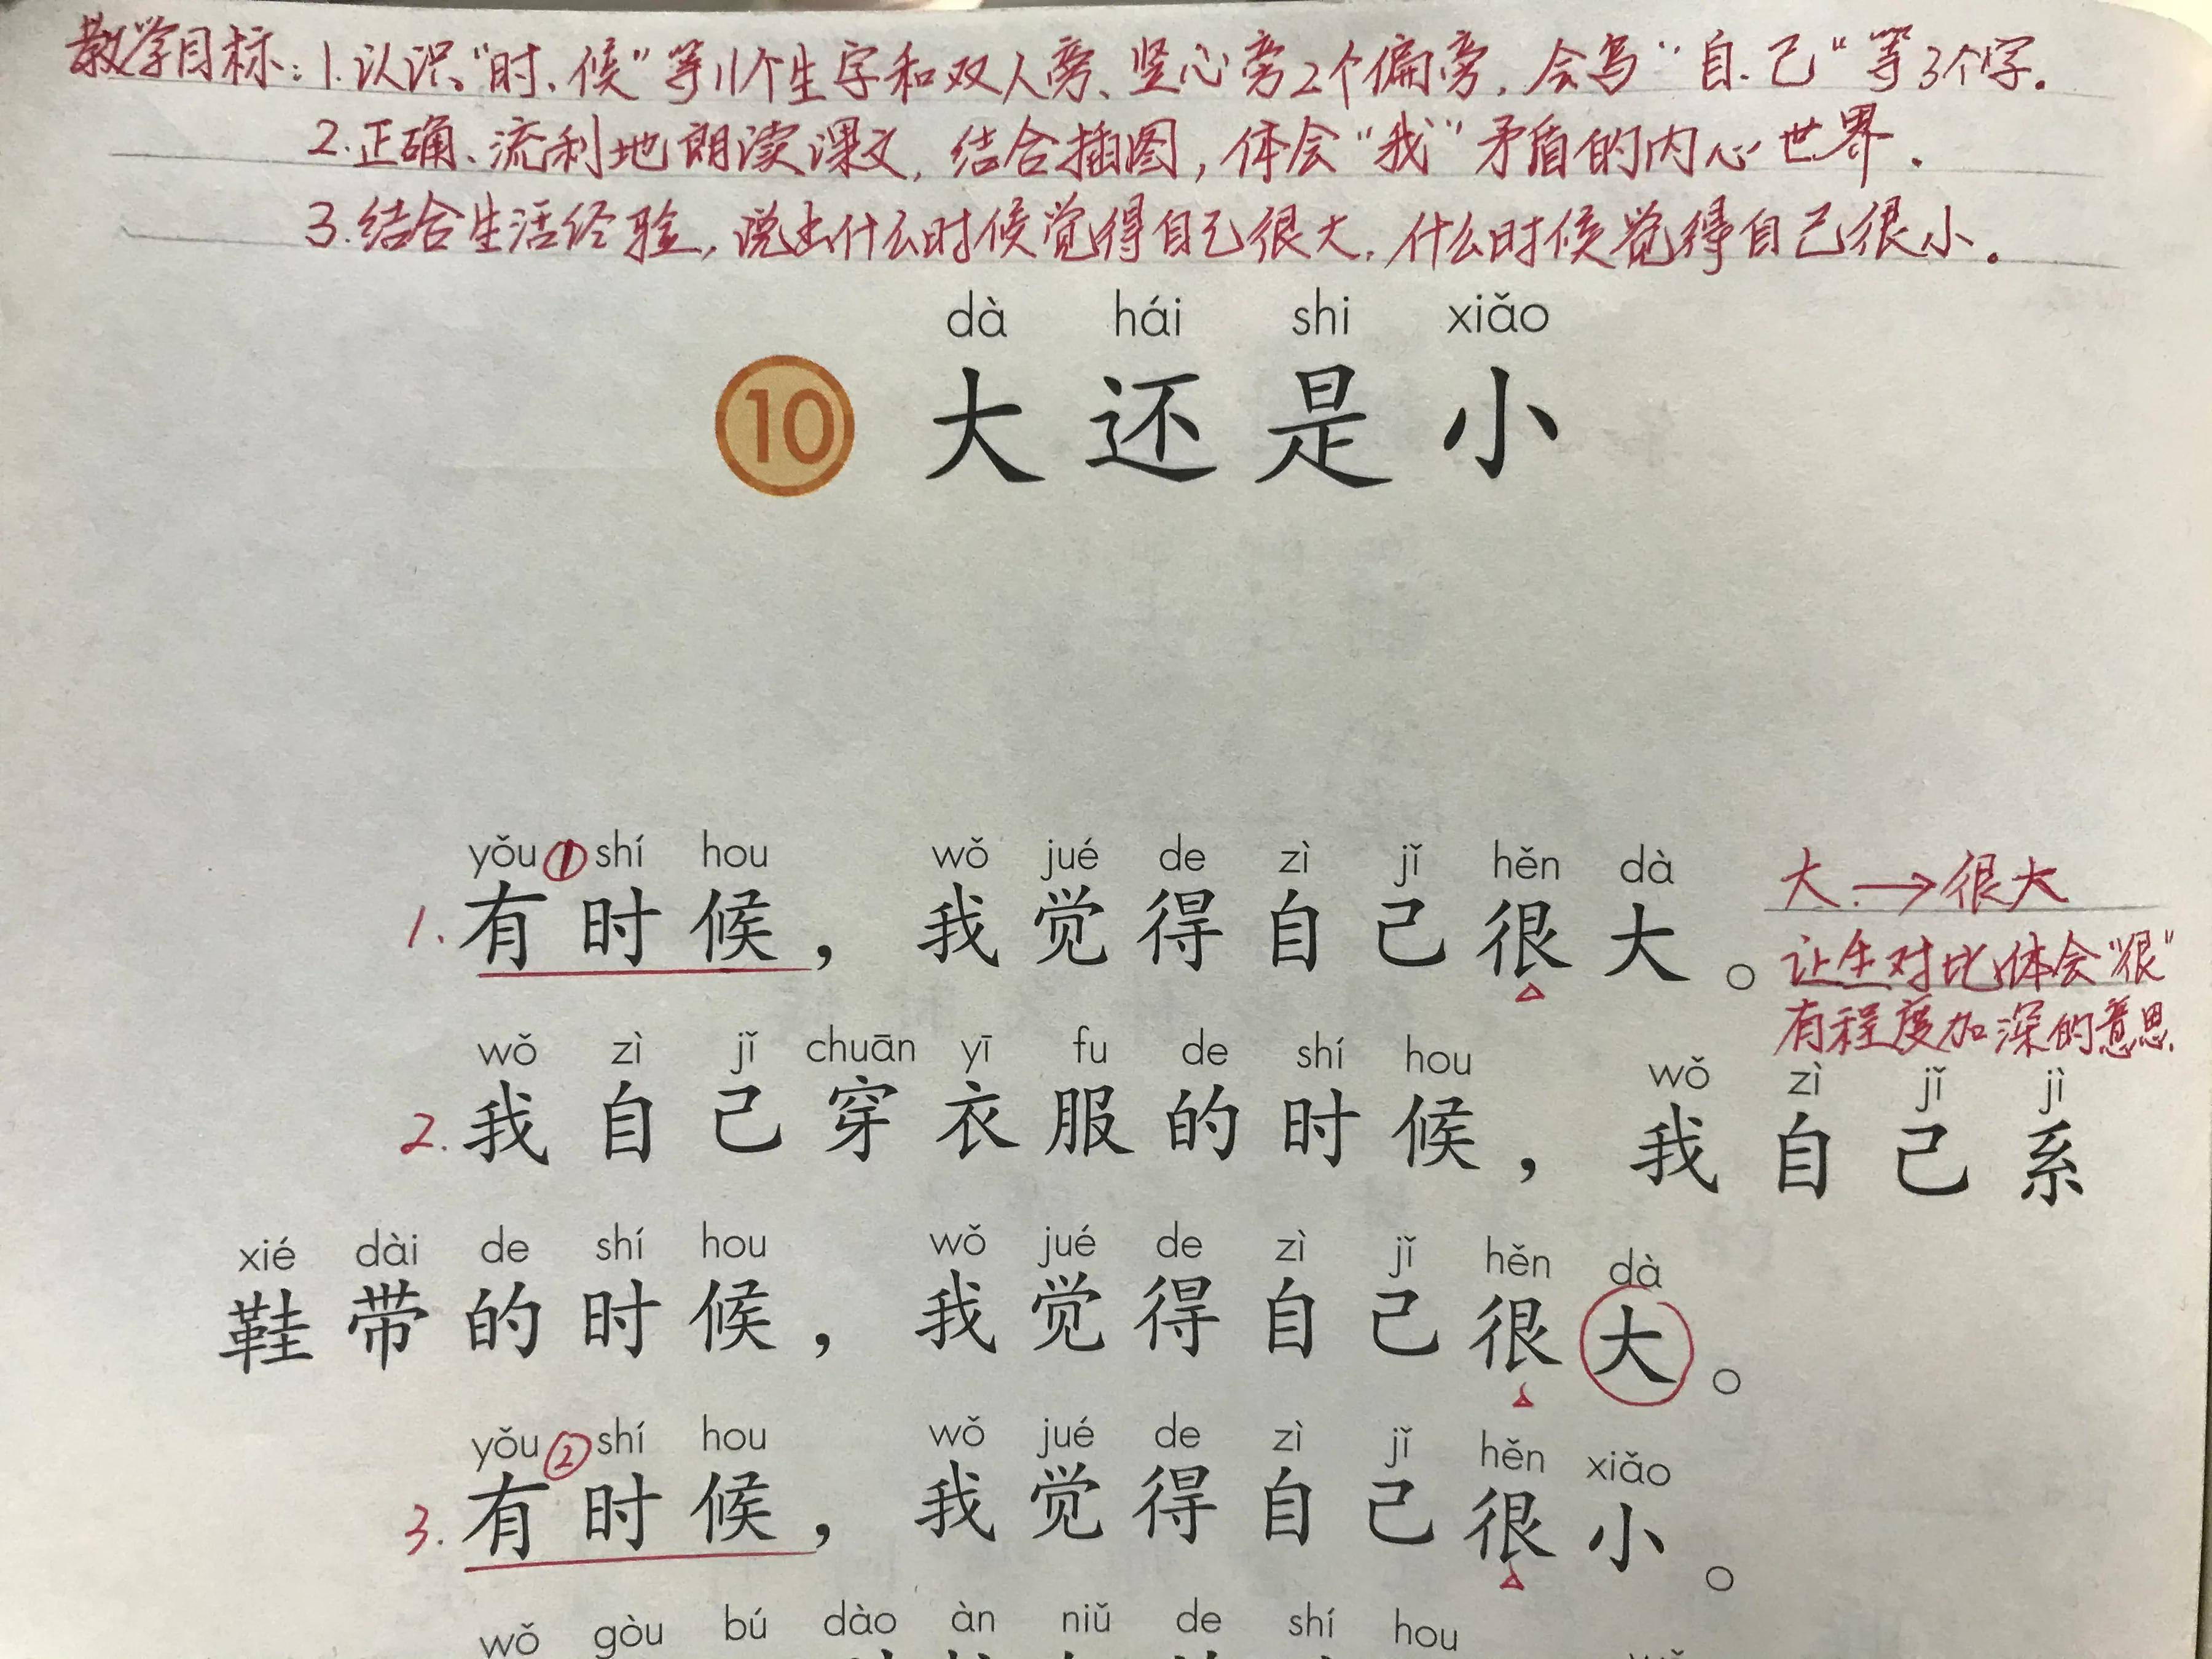 教学目标：1.认识“时、候”等11个生字和双人旁、竖心旁2个偏旁，会写“自、己”等3个字。
2.正确、流利地朗读课文，结合插图，体会“我”矛盾的内心世界。
3.结合生活经验，说出什么时候觉得自己很大，什么时候觉得自己很小。
dà hái shi xiǎo
10 大还是小
yǒu ① shí hou wǒ jué de zì jǐ hěn dà
1. 有时候，我觉得自己很大。
大→很大
让生对比体会“很”
有程度加深的意思.
wǒ zì jǐ chuān yī fu de shí hou wǒ zì jǐ jì
2. 我自己穿衣服的时候，我自己系
xié dài de shí hou wǒ jué de zì jǐ hěn dà
鞋带的时候，我觉得自己很大。
yǒu ② shí hou wǒ jué de zì jǐ hěn xiǎo
3. 有时候，我觉得自己很小。
wǒ gòu bú dào àn niǔ de shí hou